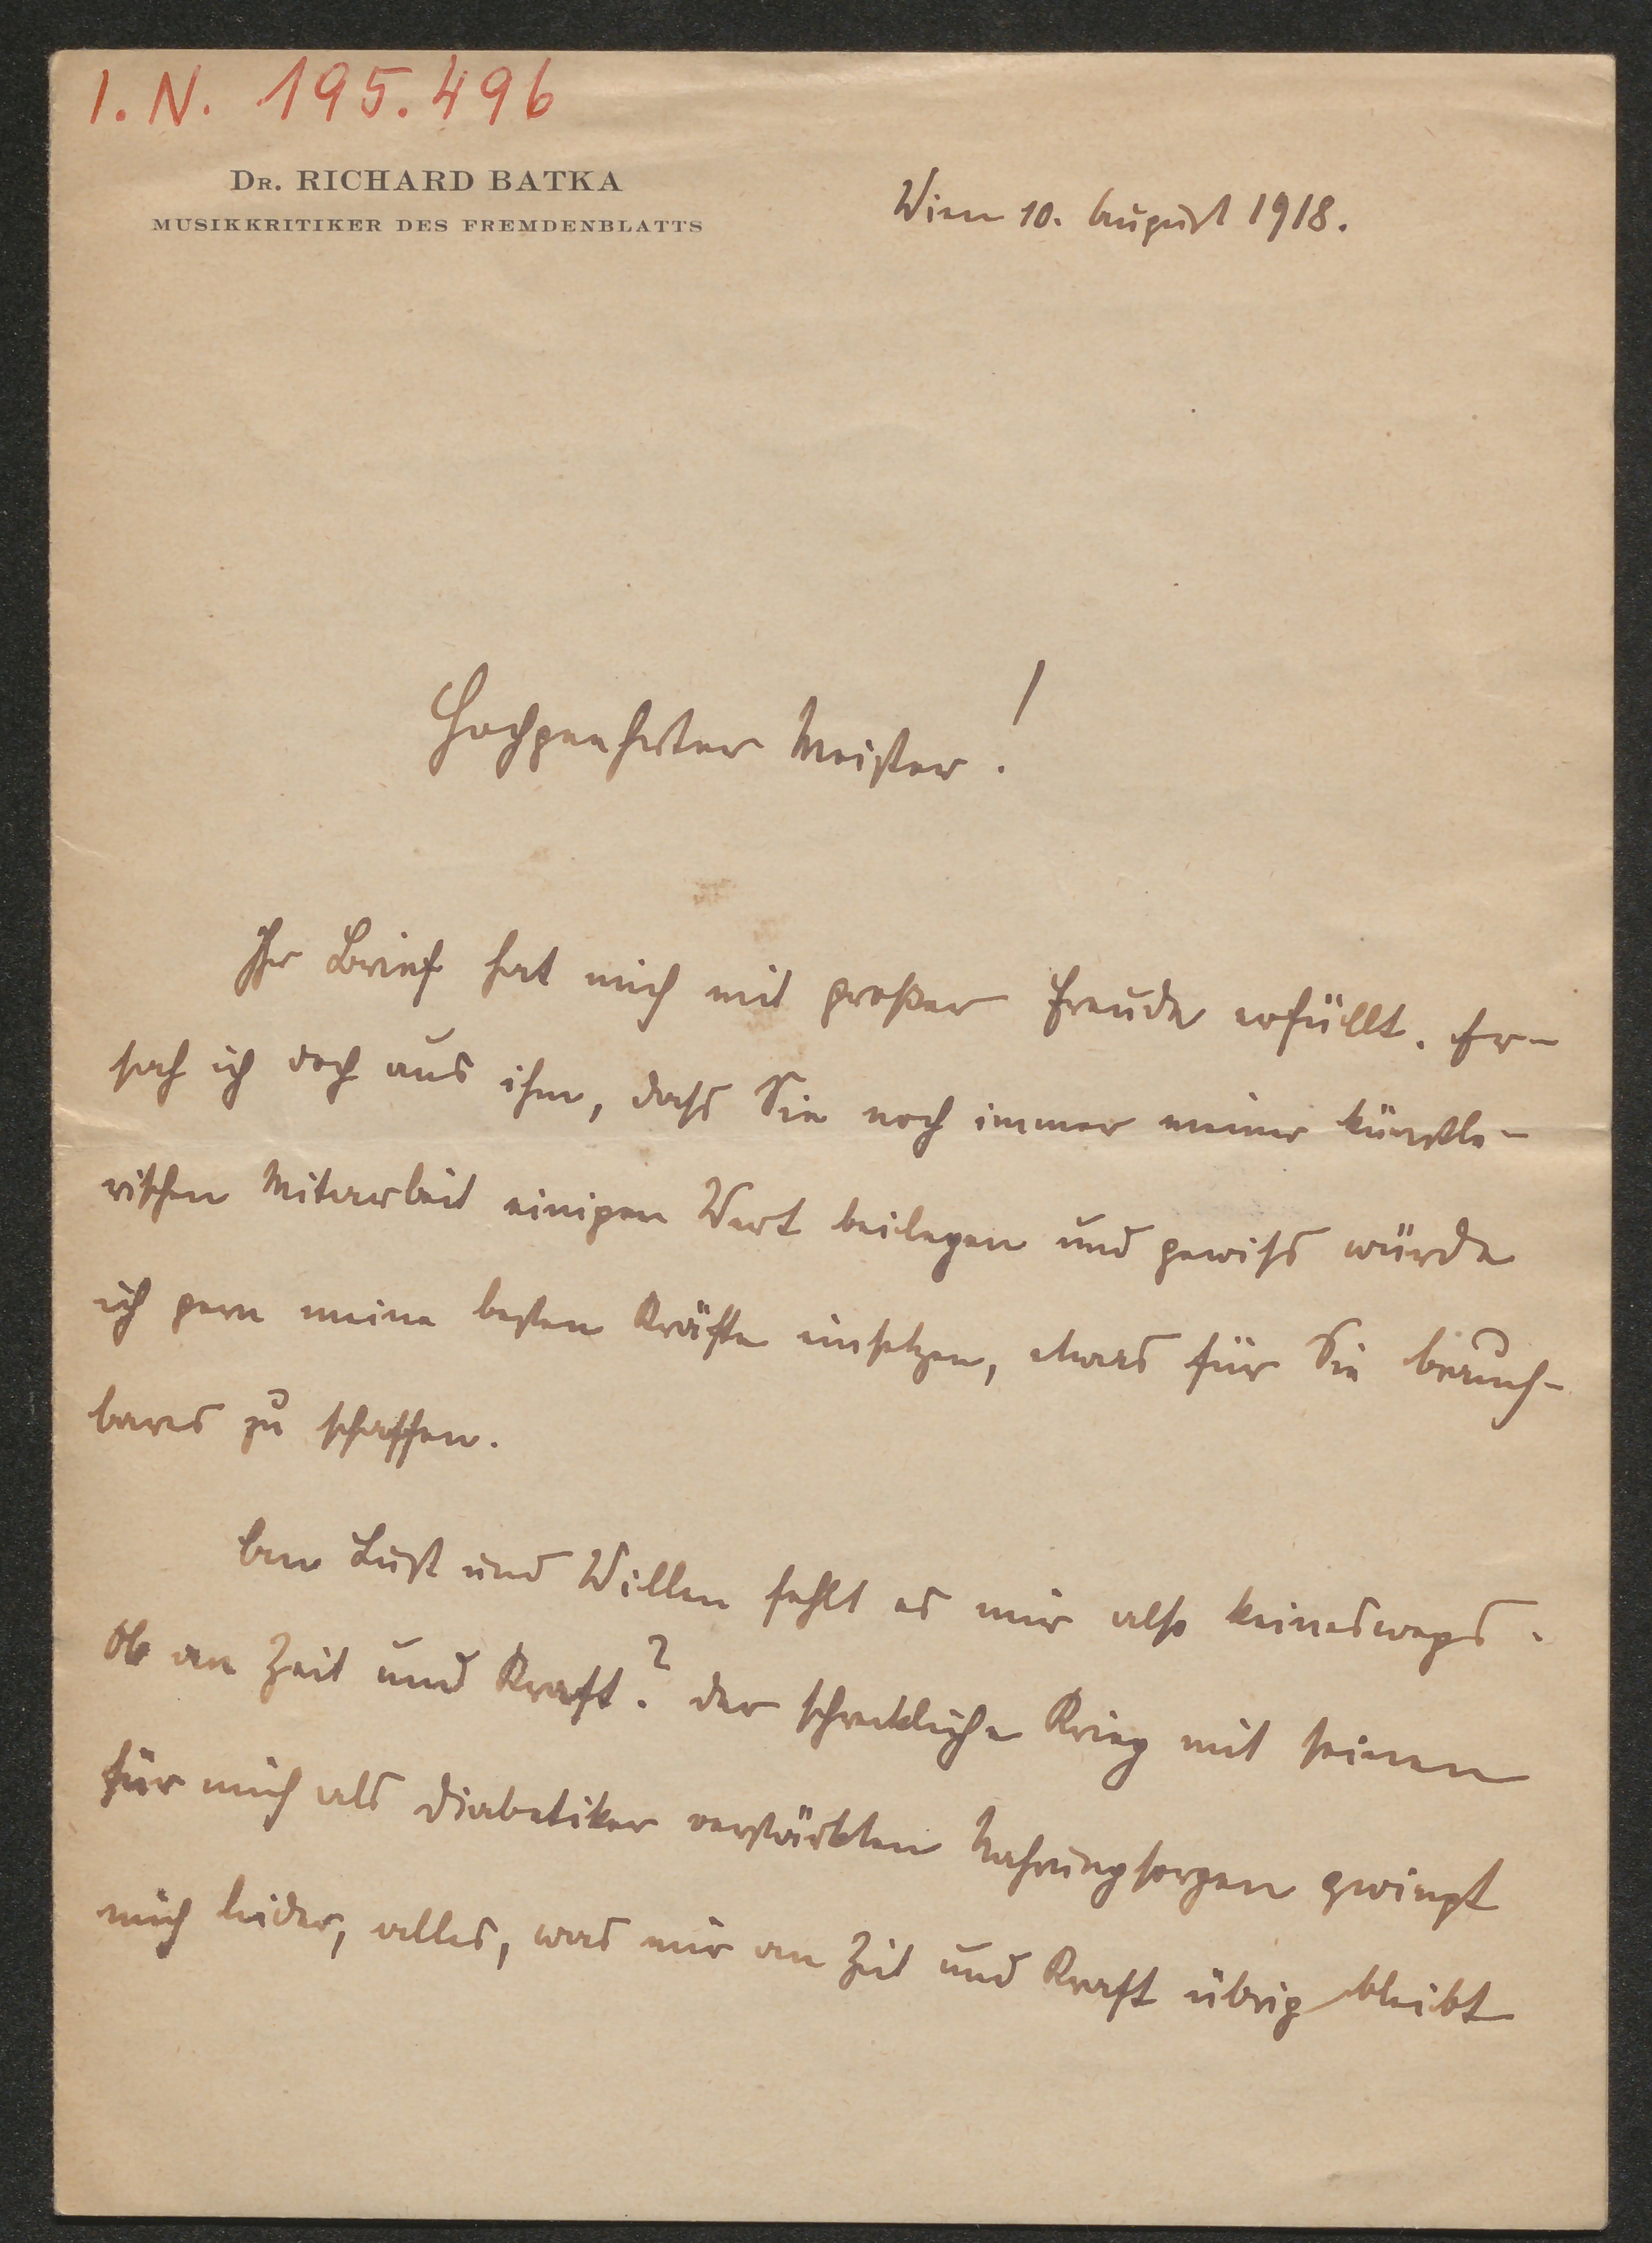 I. N. 195.496
Dr. RICHARD BATKA
MUSIKKRITIKER DES FREMDENBLATTS
Wien 10. August 1918.
Hochgeehrter Meister!
Ihr Brief hat mich mit großer Freude erfüllt. Er-
sah ich doch aus ihm, dass Sie noch immer meiner künstle-
rischen Mitarbeit einigen Wert beilegen und gewiss würde
ich gern meine besten Kräfte einsetzen, etwas für Sie brauch-
bares zu schaffen.
An Lust und Willen fehlt es mir also keineswegs.
Ob an Zeit und Kraft? Der schreckliche Krieg mit seinen
für mich als Diabetiker verstärkten Nahrungsorgen zwingt
mich leider, alles, was mir an Zeit und Kraft übrig bleibt